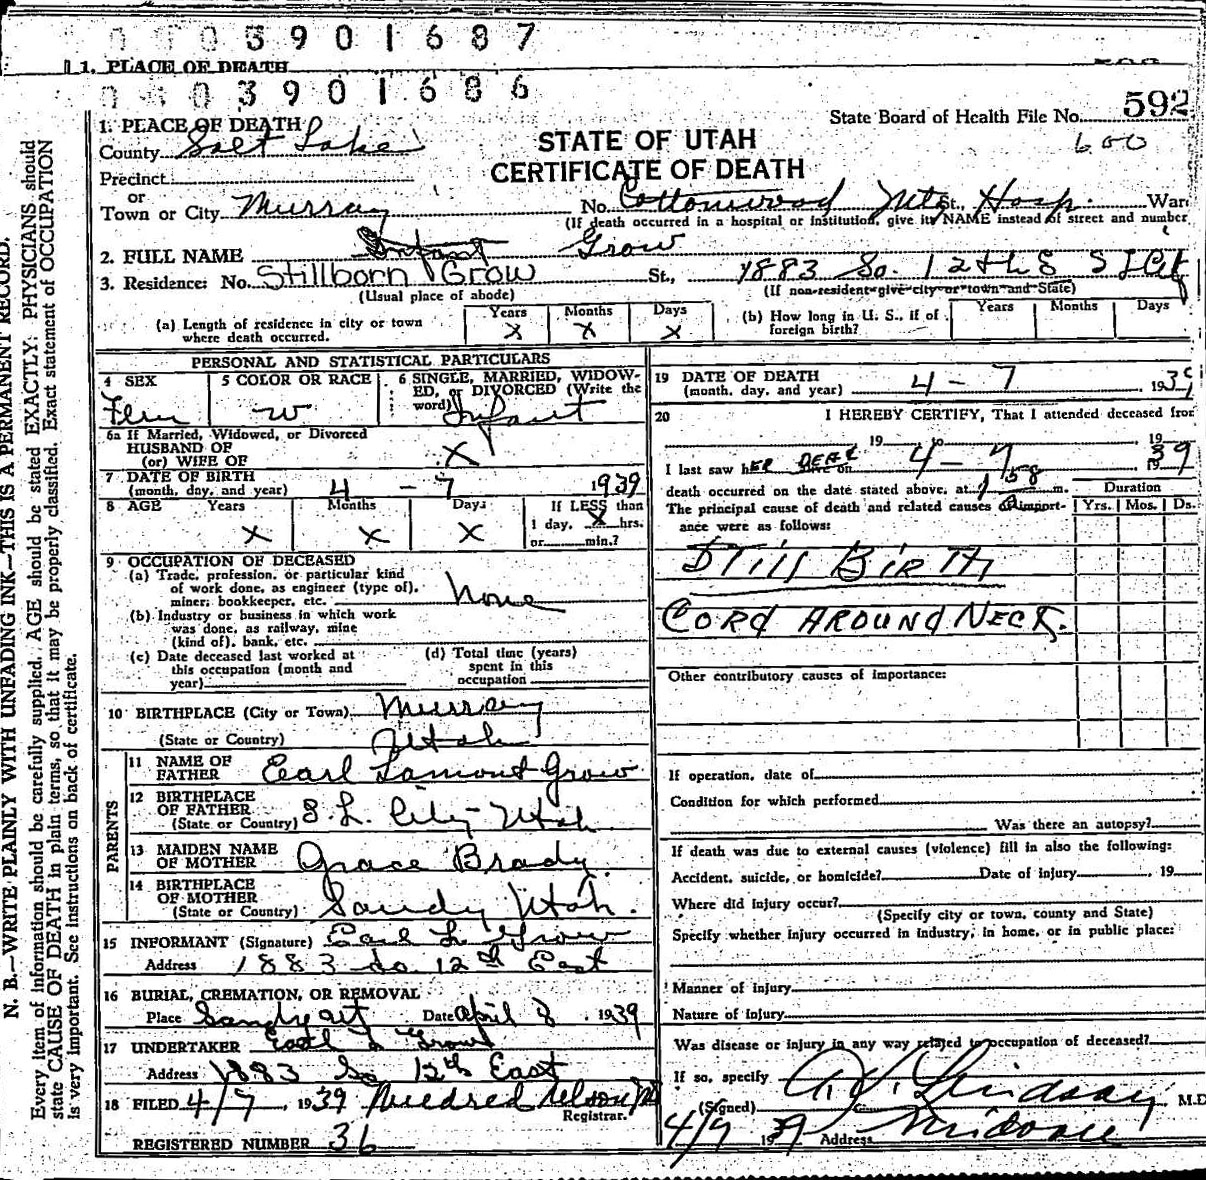 0003901687
1. PLACE OF DEATH
0003901686
State Board of Health File No. 592
600
STATE OF UTAH
CERTIFICATE OF DEATH
1. PLACE OF DEATH
County Salt Lake
Precinct
or
Town or City Murray
No. Cottonwood Mts. St., Hosp. Ward
(If death occurred in a hospital or institution, give its NAME instead of street and number
2. FULL NAME Infant Grow
3. Residence: No. Stillborn Grow St., 1883 So. 12th E S L City
(Usual place of abode) (If non-resident give city or town and State)
(a) Length of residence in city or town where death occurred. Years x Months x Days x
(b) How long in U. S., if of foreign birth? Years Months Days
PERSONAL AND STATISTICAL PARTICULARS
4 SEX Fem
5 COLOR OR RACE w
6 SINGLE, MARRIED, WIDOWED, or DIVORCED (Write the word) Infant
6a If Married, Widowed, or Divorced
HUSBAND OF
(or) WIFE OF x
7 DATE OF BIRTH
(month, day, and year) 4 - 7 1939
8 AGE Years x Months x Days x
If LESS than
1 day, x hrs.
or min.?
9 OCCUPATION OF DECEASED
(a) Trade, profession, or particular kind
of work done, as engineer (type of),
miner; bookkeeper, etc. None
(b) Industry or business in which work
was done, as railway, mine
(kind of), bank, etc.
(c) Date deceased last worked at
this occupation (month and
year)
(d) Total time (years)
spent in this
occupation
10 BIRTHPLACE (City or Town) Murray
(State or Country) Utah
PARENTS
11 NAME OF
FATHER Earl Lamont Grow
12 BIRTHPLACE
OF FATHER
(State or Country) S. L. City - Utah
13 MAIDEN NAME
OF MOTHER Grace Brady.
14 BIRTHPLACE
OF MOTHER
(State or Country) Sandy Utah.
15 INFORMANT (Signature) Earl L Grow
Address 1883 So. 12th East
16 BURIAL, CREMATION, OR REMOVAL
Place Sandy Ut Date April 8, 1939
17 UNDERTAKER Earl L Grow
Address 1883 So 12th East
18 FILED 4/7 1939 Mildred Nelson
Registrar.
REGISTERED NUMBER 36
19 DATE OF DEATH
(month, day, and year) 4 - 7 1939
20 I HEREBY CERTIFY, That I attended deceased from
19 to 19
I last saw hER DEAD alive on 4 - 7 1939
death occurred on the date stated above, at 1 58 m.
The principal cause of death and related causes of importance were as follows:
Duration
Yrs. Mos. Ds.
Still Birth
CORD AROUND NECK.
Other contributory causes of importance:
If operation, date of
Condition for which performed
Was there an autopsy?
If death was due to external causes (violence) fill in also the following:
Accident, suicide, or homicide? Date of injury , 19
Where did injury occur?
(Specify city or town, county and State)
Specify whether injury occurred in industry, in home, or in public place:
Manner of injury
Nature of injury
Was disease or injury in any way related to occupation of deceased?
If so, specify
(Signed) Lindsay M.D
4/9 1939 Address Midvale
N. B.—WRITE PLAINLY WITH UNFADING INK—THIS IS A PERMANENT RECORD.
Every item of information should be carefully supplied. AGE should be stated EXACTLY. PHYSICIANS should
state CAUSE OF DEATH in plain terms, so that it may be properly classified. Exact statement of OCCUPATION
is very important. See instructions on back of certificate.